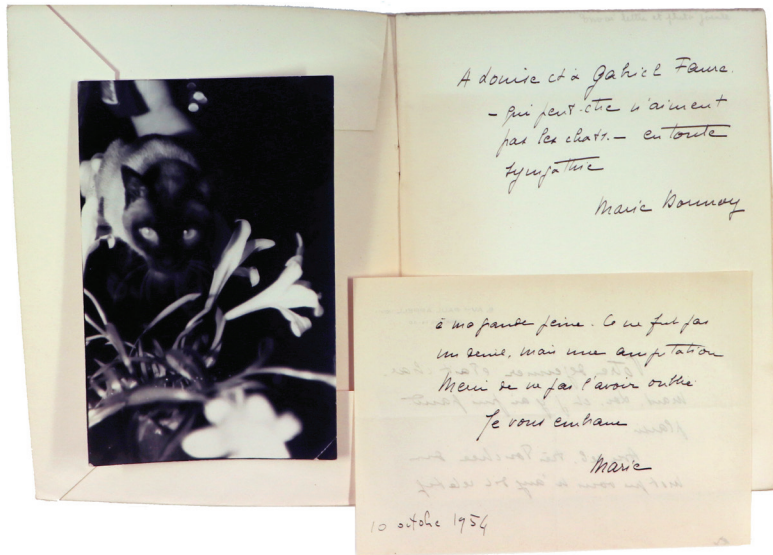 A Louise et à Gabriel Faure.
- qui peut-être n'aiment
pas les chats. - en toute
sympathie
Marie Dormoy
à ma grande peine. Ce ne fut pas
un deuil, mais une amputation
Merci de ne pas l'avoir oublié
Je vous embrasse
Marie
10 octobre 1954